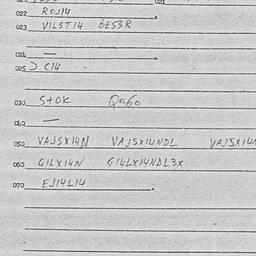 022 ROJ14
023 VILST14 BES3R
024 —
025 > C14 - -
030 S+OK Qn60
040 —
050 VAJSX14N VAJSX14NDL VAJSX14N
060 GILX14N G14LX14NDL3X
070 EJ14L14